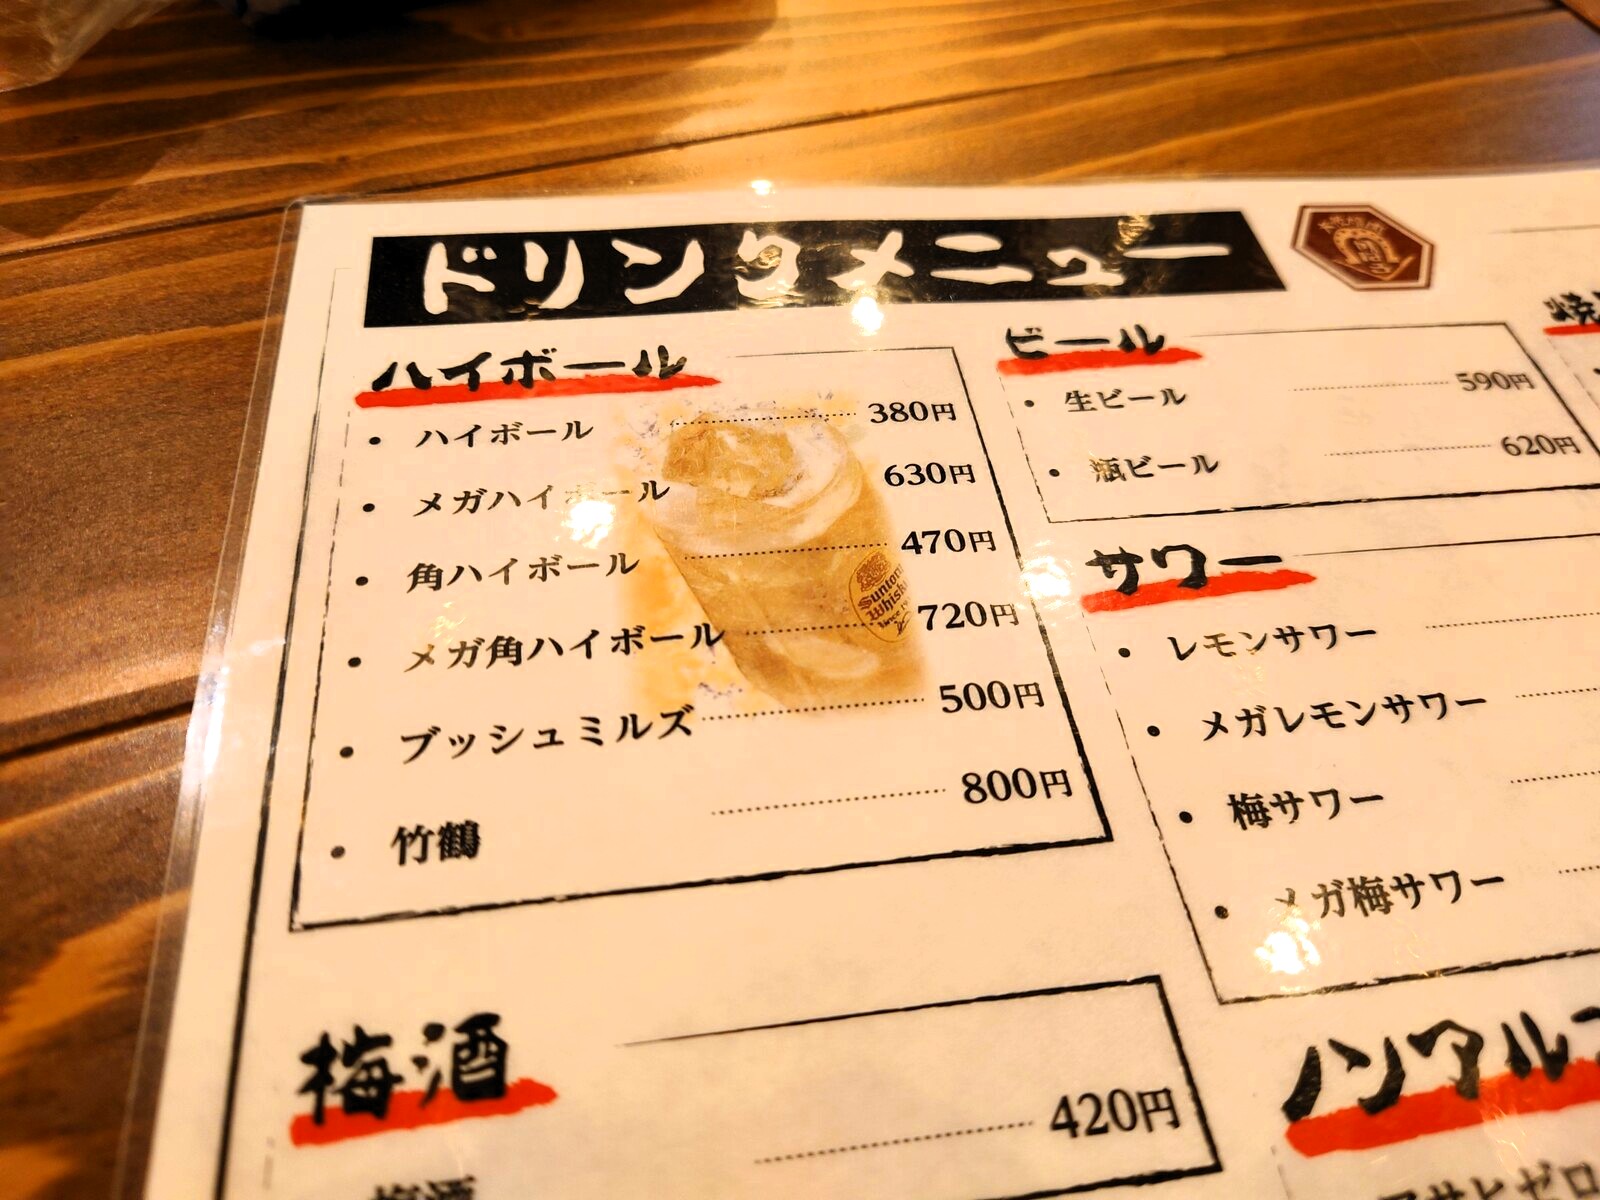 ドリンクメニュー
ハイボール
・ハイボール 380円
・メガハイボール 630円
・角ハイボール 470円
・メガ角ハイボール 720円
・ブッシュミルズ 500円
・竹鶴 800円
Suntory
Whisky
梅酒
梅酒 420円
ビール
・生ビール 590円
・瓶ビール 620円
サワー
・レモンサワー
・メガレモンサワー
・梅サワー
・メガ梅サワー
ノンアル